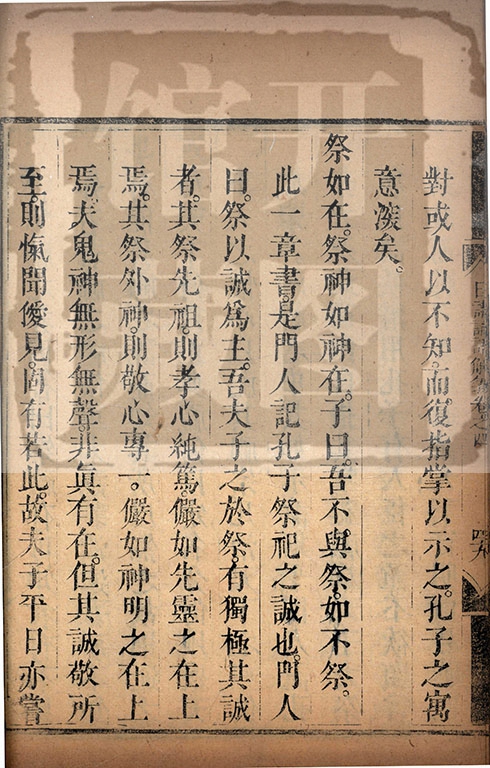 對或人以不知。而復指掌以示之。孔子之寓
意深矣。
祭如在。祭神如神在。子曰。吾不與祭。如不祭。
此一章書。是門人記孔子祭祀之誠也。門人
曰。祭以誠為主。吾夫子之於祭。有獨極其誠
者。其祭先祖。則孝心純篤。儼如先靈之在上
焉。其祭外神。則敬心專一。儼如神明之在上
焉。夫鬼神無形無聲。非真有在。但其誠敬所
至。則愾聞僾見。固有若此。故夫子平日亦嘗
日講
解
卷之四